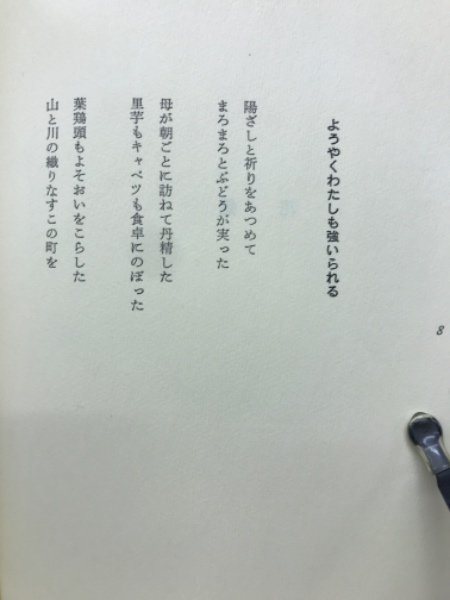 ようやくわたしも強いられる
陽ざしと祈りをあつめて
まろまろとぶどうが実った
母が朝ごとに訪ねて丹精した
里芋もキャベツも食卓にのぼった
葉鶏頭もよそおいをこらした
山と川の織りなすこの町を
8